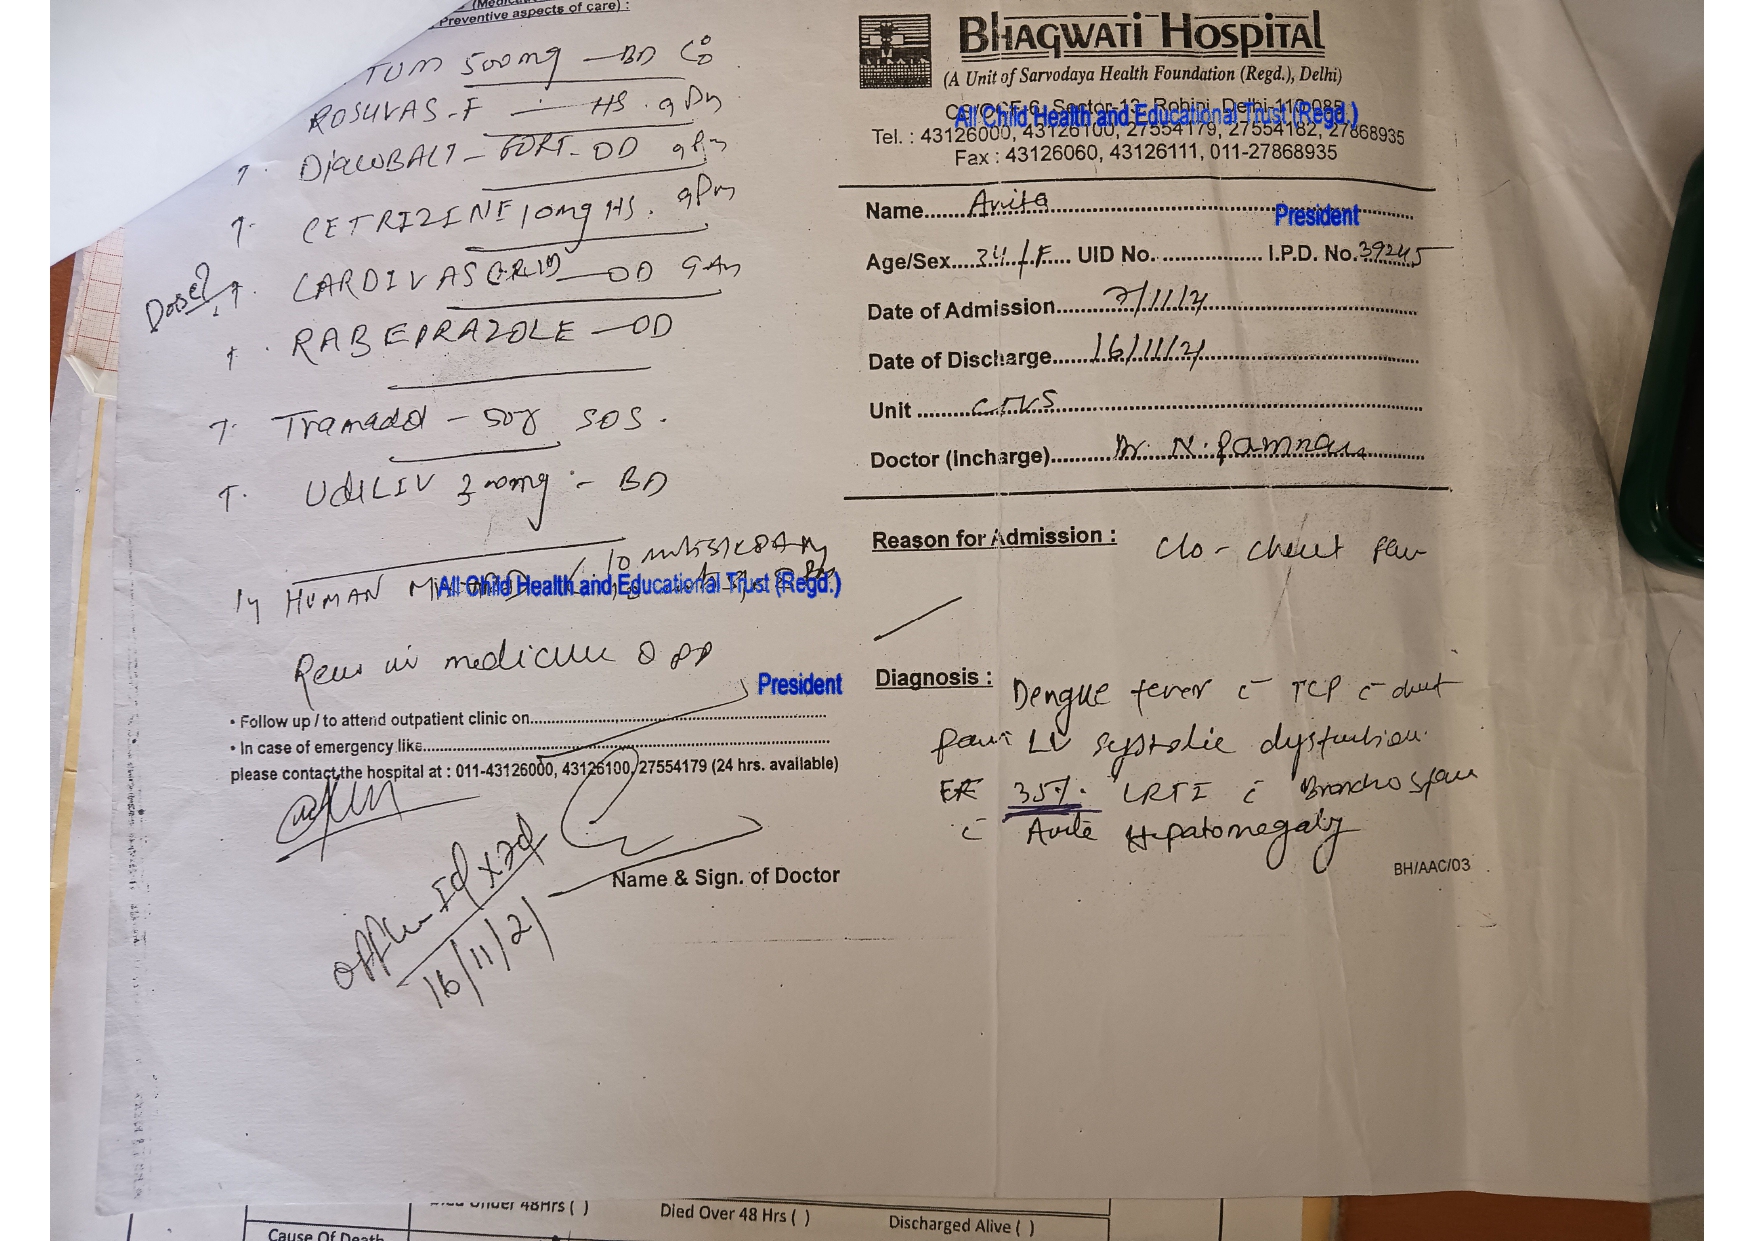 Preventive aspects of care) :
TUM 500mg - BD
ROSUVAS-F - HS. 9Pm
FORT- OD 9Pm
T. CETRIZINE 10mg HS. 9Pm
Dose?
T. CARDIVAS OD 9Am
T. RABEPRAZOLE - OD
T. Tramadol - 50 SOS.
T. UdiLIV 300mg - BD
HUMAN
All Child Health and Educational Trust (Regd.)
in medicine OPD
President
• Follow up / to attend outpatient clinic on
• In case of emergency like
please contact the hospital at : 011-43126000, 43126100, 27554179 (24 hrs. available)
16/11/21
Name & Sign. of Doctor
BHAGWATI HOSPITAL
(A Unit of Sarvodaya Health Foundation (Regd.), Delhi)
Sector-13, Rohini, Delhi-110 085
All Child Health and Educational Trust (Regd.)
Tel. : 43126000, 43126100, 27554179, 27554182, 27868935
Fax : 43126060, 43126111, 011-27868935
Name
President
Age/Sex 34/F UID No. I.P.D. No. 39245
Date of Admission
Date of Discharge 16/11/21
Unit
Doctor (incharge) Dr. N.
Reason for Admission : c/o - chest pain
Diagnosis : Dengue fever c̄ TCP c̄ chest
pain LV systolic dysfunction.
EF 35%. LRTI c̄ Bronchospasm
c̄ Acute Hepatomegaly
BH/AAC/03
48Hrs ( )
Died Over 48 Hrs ( )
Discharged Alive ( )
Cause Of Death